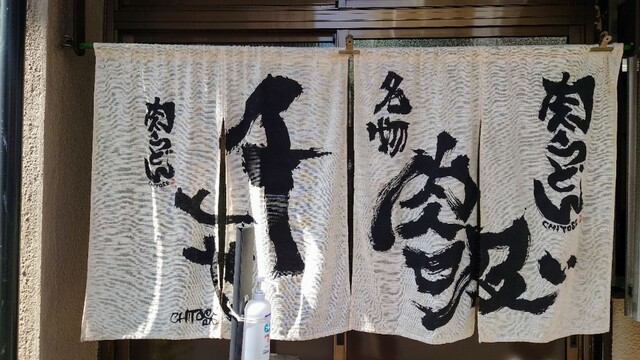 肉うどん
CHITOSE
名物
肉吸い
千
とせ
肉うどん
CHITOSE